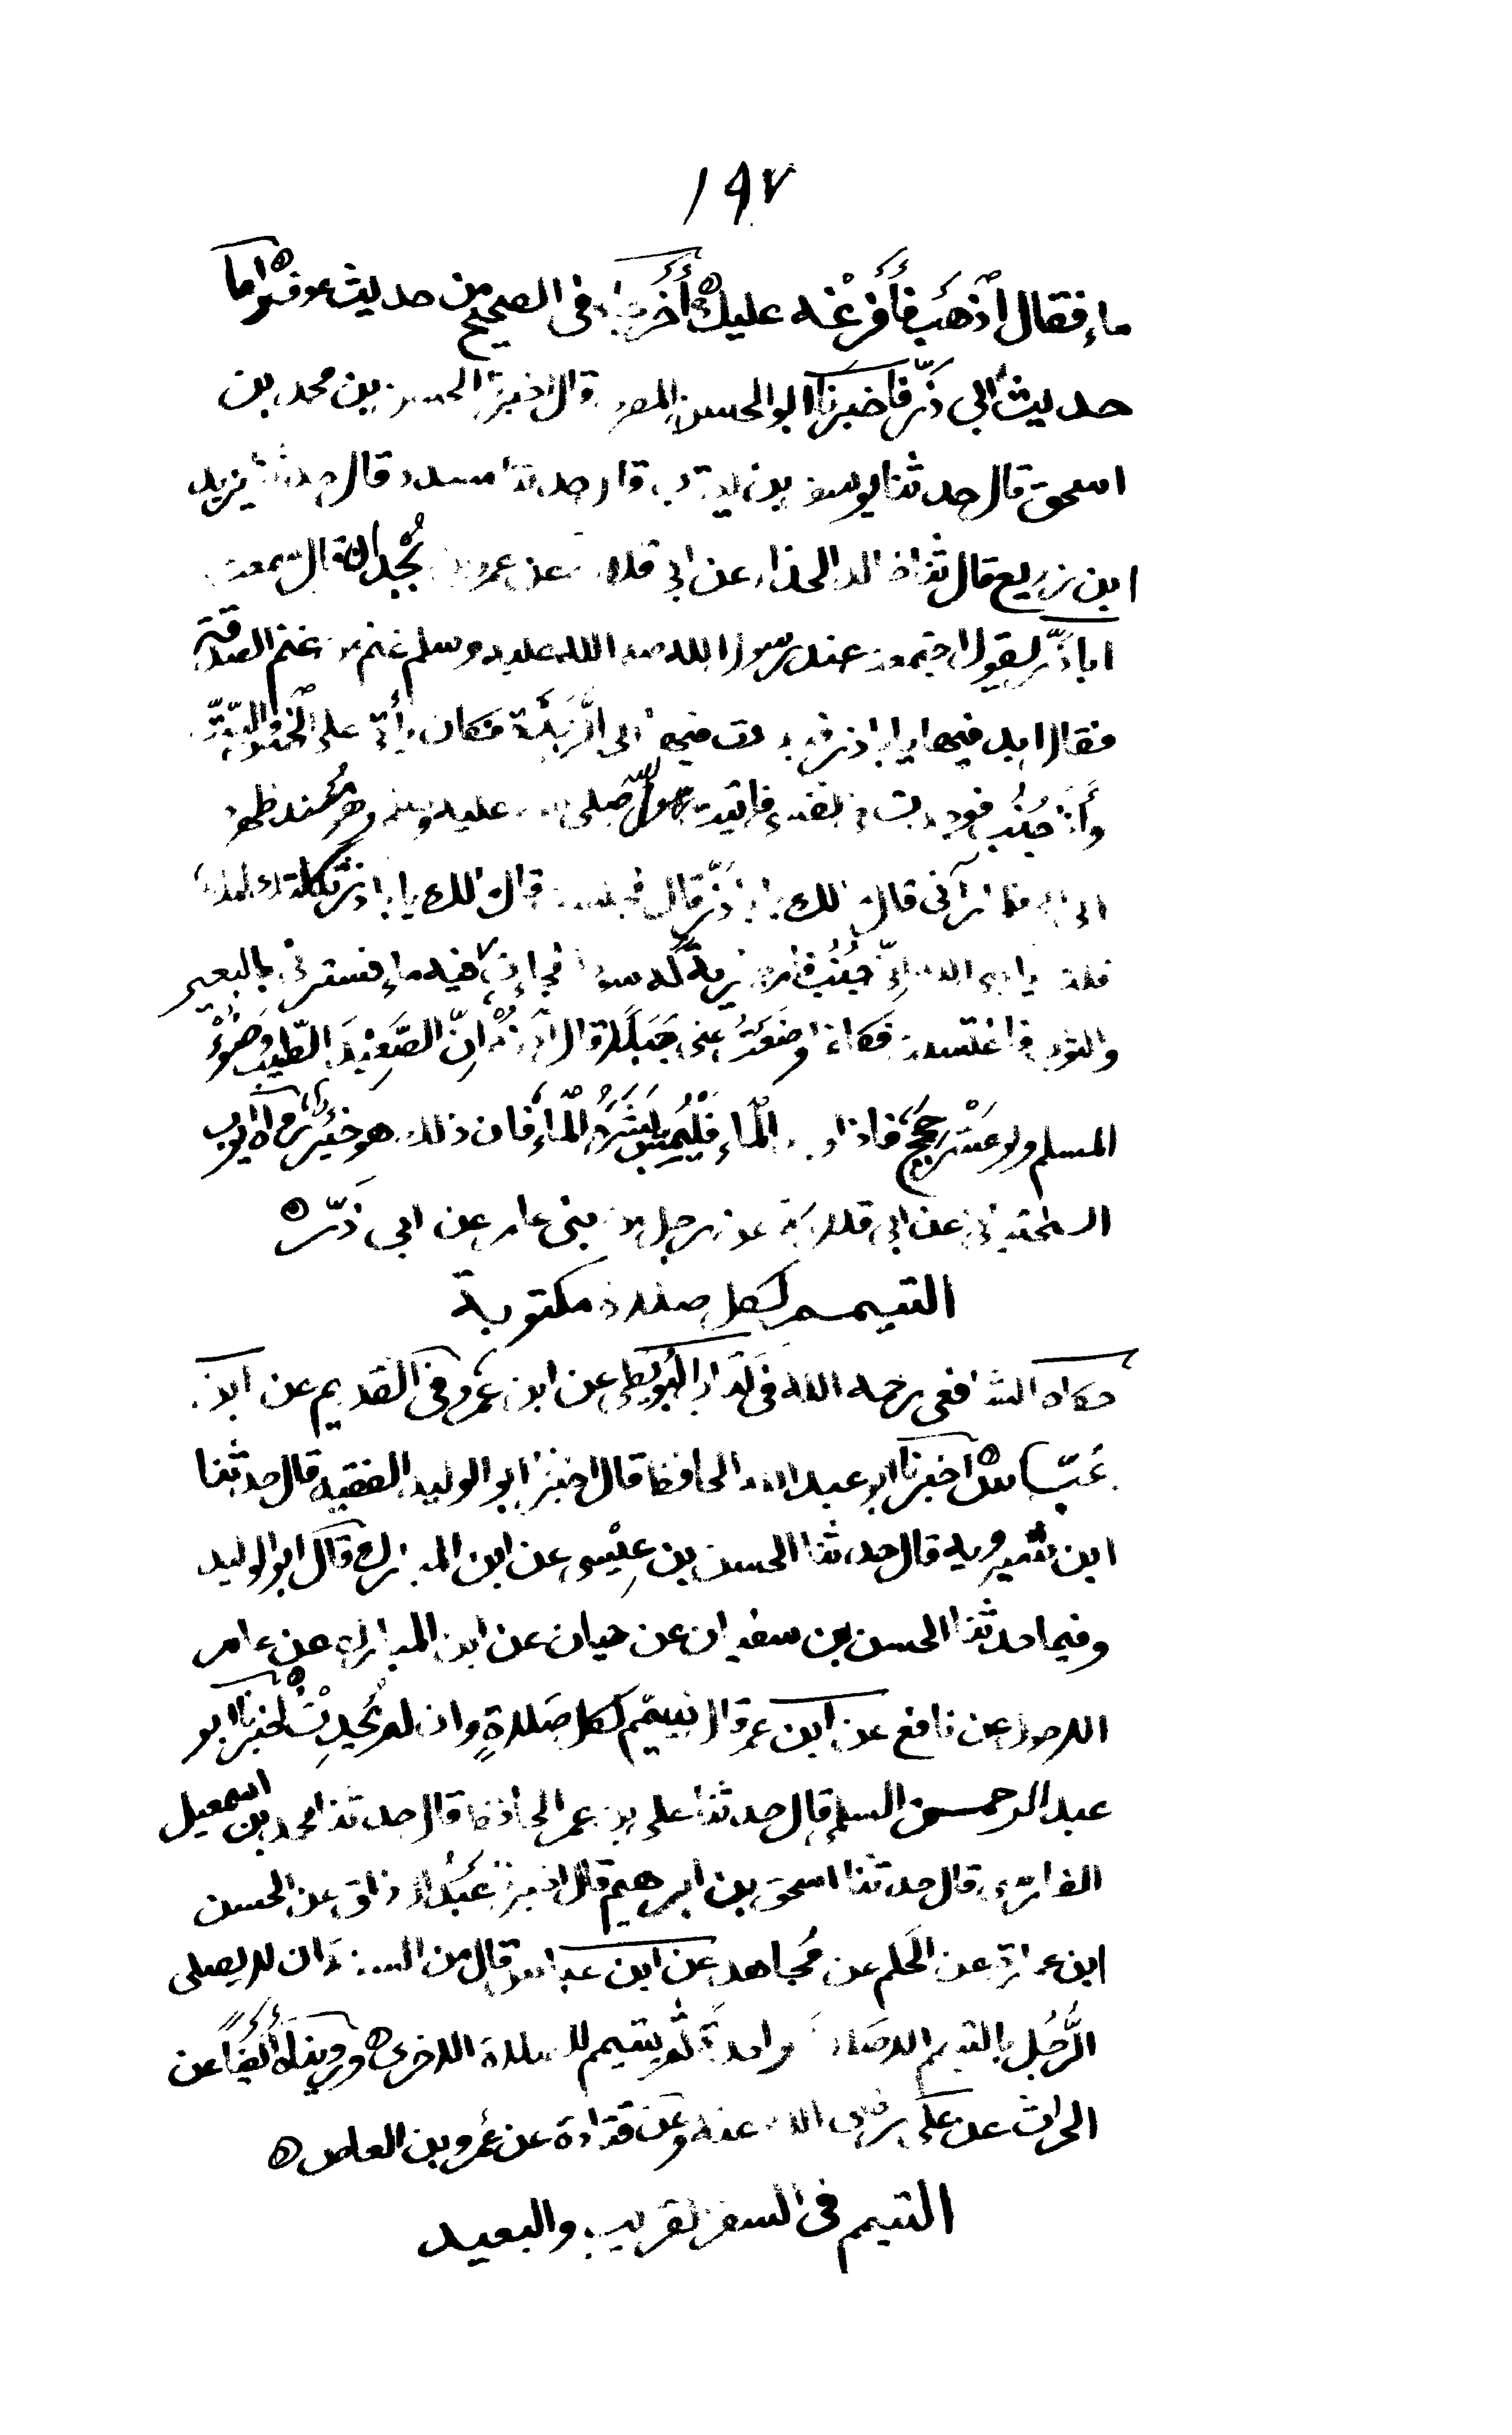 ١٩٧
ماء فقال اذهب فأفرغه عليك أخرجاه فى الصحيح من حديث عوف واما
حديث ابى ذر فاخبرنا ابو الحسن المقرى قال اخبرنا الحسن بن محمد بن
اسحق قال حدثنا يوسف بن يعقوب قال حدثنا مسدد قال حدثنا يزيد
ابن زريع قال ثنا خالد الحذاء عن ابى قلابة عن عمرو بن بجدان قال سمعت
اباذر يقول اجتمعت عند رسول الله صلى الله عليه وسلم غنم من غنم الصدقة
فقال ابد فيها يا ابا ذر فبدوت فيها الى الربذة فكان يأتى على الخمس والستة
وأنا جنب فوجدت فى نفسى فاتيت رسول الله صلى الله عليه وسلم وهو مسند ظهره
الى فلما رآنى قال مالك يا ابا ذر قال فجلست قال مالك يا ابا ذر ثكلتك امك
قلت يا رسول الله إنى جنب فامر جارية له سوداء فجاءت فيه ماء فسترتنى بالبعير
والثوب فاغتسلت فكانما وضعت عنى جبلا قال ادن ان الصعيد الطيب وضوء
المسلم ولو عشر حجج فاذا وجد الماء فليمس بشره الماء فان ذلك هو خير ورواه ايوب
السختيانى عن ابى قلابة عن رجل من بنى عامر عن ابى ذر
التيمم لكل صلاة مكتوبة
حكاه الشافعى رحمه الله فى كتاب البويطى عن ابن عمر وفى القديم عن ابن
عباس اخبرنا ابو عبد الله الحافظ قال اخبرنا ابو الوليد الفقيه قال حدثنا
ابن شيرويه قال حدثنا الحسن بن عيسى عن ابن المبارك وقال ابو الوليد
وفيما حدثنا الحسن بن سفيان عن حبان عن ابن المبارك عن عامر
الاحول عن نافع عن ابن عمر قال تيمم لكل صلاة وان لم تحدث اخبرنا ابو
عبد الرحمن السلمى قال حدثنا على بن عمر الحافظ قال حدثنا محمد بن اسمعيل
الفارسى قال حدثنا اسحق بن ابرهيم قال اخبرنا عبد الرزاق عن الحسن
ابن عمارة عن الحكم عن مجاهد عن ابن عباس قال من السنة ان لا يصلى
الرجل بالتيمم الا صلاة واحدة ثم يتيمم للصلاة الاخرى ورويناه أيضا عن
الحراث عن على رضى الله عنه وعن قتادة عن عمرو بن العاص
التيمم فى السفر القريب والبعيد